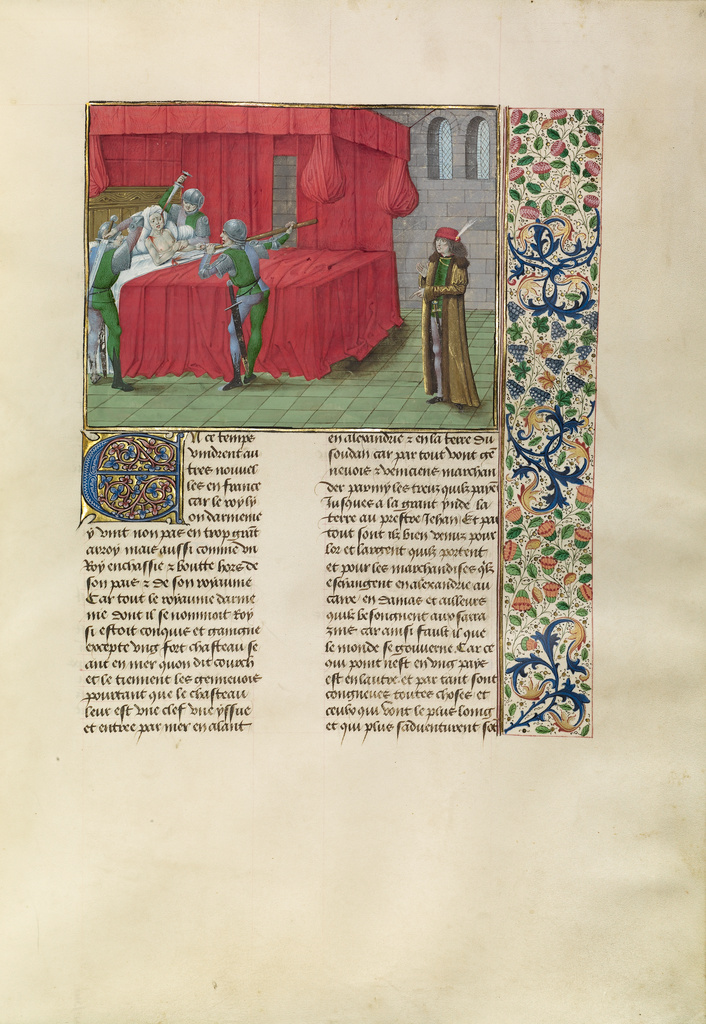 En ce temps
vindrent au
tres nouuel
les en france
car le roy ly
on darmenie
y vint non pas en trop grāt
arroy mais aussi comme vn
Roy enchassie & boutte hors de
son pais & de son royaume
Car tout le royaume darme
nie dont il se nommoit Roy
si estoit conquis et gaingne
excepte vng fort chasteau se
ant en mer quon dit courch
et le tiennent les gennevois
pourtant que le chasteau
leur est vne clef vne yssue
et entree par mer en alant
en alexandrie & en la terre du
soudan car par tout vont ge
neuois & veniciens marchan
der parmy les treuz quilz paient
Jusques a la grant ynde la
terre au prestre Jehan Et par
tout sont ilz bien venuz pour
lor et largent quilz portent
et pour les marchandises qlz
eschangent en alexandrie au
caire en damas et ailleurs
quilz besongnent aux sarra
zins car ainsi fault il que
le monde se gouuerne Car ce
qui point nest en vng pays
est en lautre et par tant sont
congneues toutes choses et
ceulx qui vont le plus loing
et qui plus saduenturent sōt